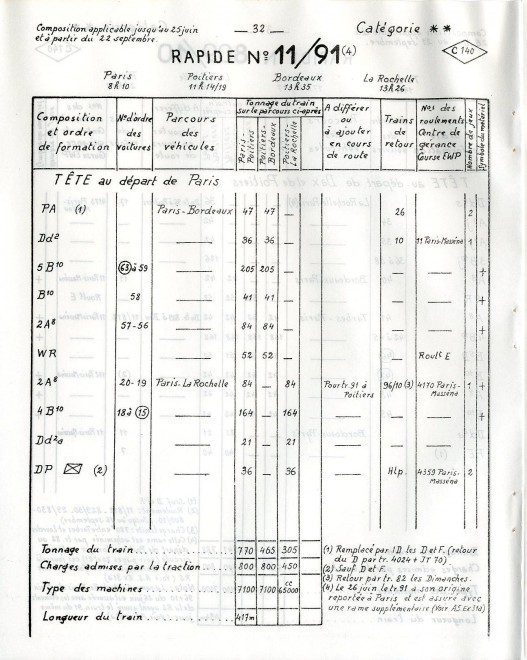 Composition applicable jusqu'au 25 juin
et à partir du 22 septembre.
— 32 —
Catégorie **
RAPIDE N° 11/91 (4)
C 140
Paris Poitiers Bordeaux La Rochelle
8 H 10 11 H 14/19 13 H 35 13 H 26
Composition et ordre de formation
N°s d'ordre des voitures
Parcours des véhicules
Tonnage du train sur le parcours ci-après
Paris-Poitiers
Poitiers-Bordeaux
Poitiers-La Rochelle
A différer ou à ajouter en cours de route
Trains de retour
N°s des roulements Centre de gerance Course EWP
Nombre de jeux
Symbole du matériel
TÊTE au départ de Paris
PA (1) Paris-Bordeaux 47 47 — 26 2
Dd² — 36 36 — — 10 11 Paris-Masséna 1
5 B¹⁰ 63 à 59 — 205 205 — — — — +
B¹⁰ 58 — 41 41 — — — — +
2A⁸ 57-56 — 84 84 — — — — +
WR — 52 52 — — Roult E
2A⁸ 20-19 Paris-La Rochelle 84 — 84 Pour tr. 91 à Poitiers 96/10 (3) 4170 Paris-Masséna 1 +
4 B¹⁰ 18 à 15 — 164 — 164 — — — +
Dd²a — 21 — 21 — — —
DP (2) — 36 — 36 — Hlp. 4359 Paris-Masséna 2
Tonnage du train 770 465 305
Charges admises par la traction 800 800 450
Type des machines 7100 7100 CC 65000
Longueur du train 417m
(1) Remplacé par 1D. les D et F. (retour
du D par tr. 4024 + JT 70)
(2) Sauf D et F.
(3) Retour par tr. 82 les Dimanches.
(4) Le 26 juin le tr. 91 a son origine
reportée à Paris et est assuré avec
une rame supplémentaire (Voir AS.Ee31d)